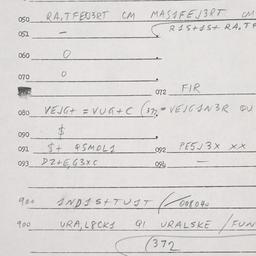 050 RA,TFEU3RT CM MAS1FEJ3RT CM
051 - R1S+1S+ RA,TF
060 0
070 0
072 FIR
080 VEJG+ = VUG+C (372 = VEJG1N3R QU
090 $
091 $+ 4SMOL1 092 PE5J3X XX
093 DZ+E,G3XC 094 -
900 1ND1S+TUJT /008040
900 URA,L8CK1 Q1 URALSKE /FUN
(372